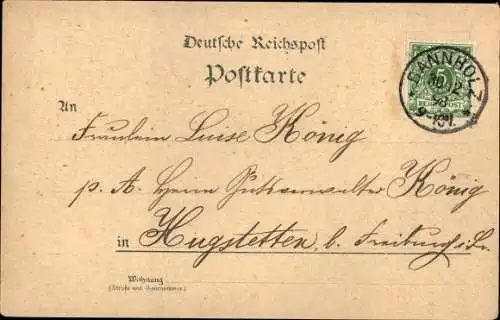 Deutsche Reichspost
Postkarte
BANNHOLZ
5
REICHSPOST
An
Fräulein Luise König
p. A. Herrn Gutsverwalter König
in Hugstetten, b. Freiburg i. B.
Wohnung
(Straße und Hausnummer)